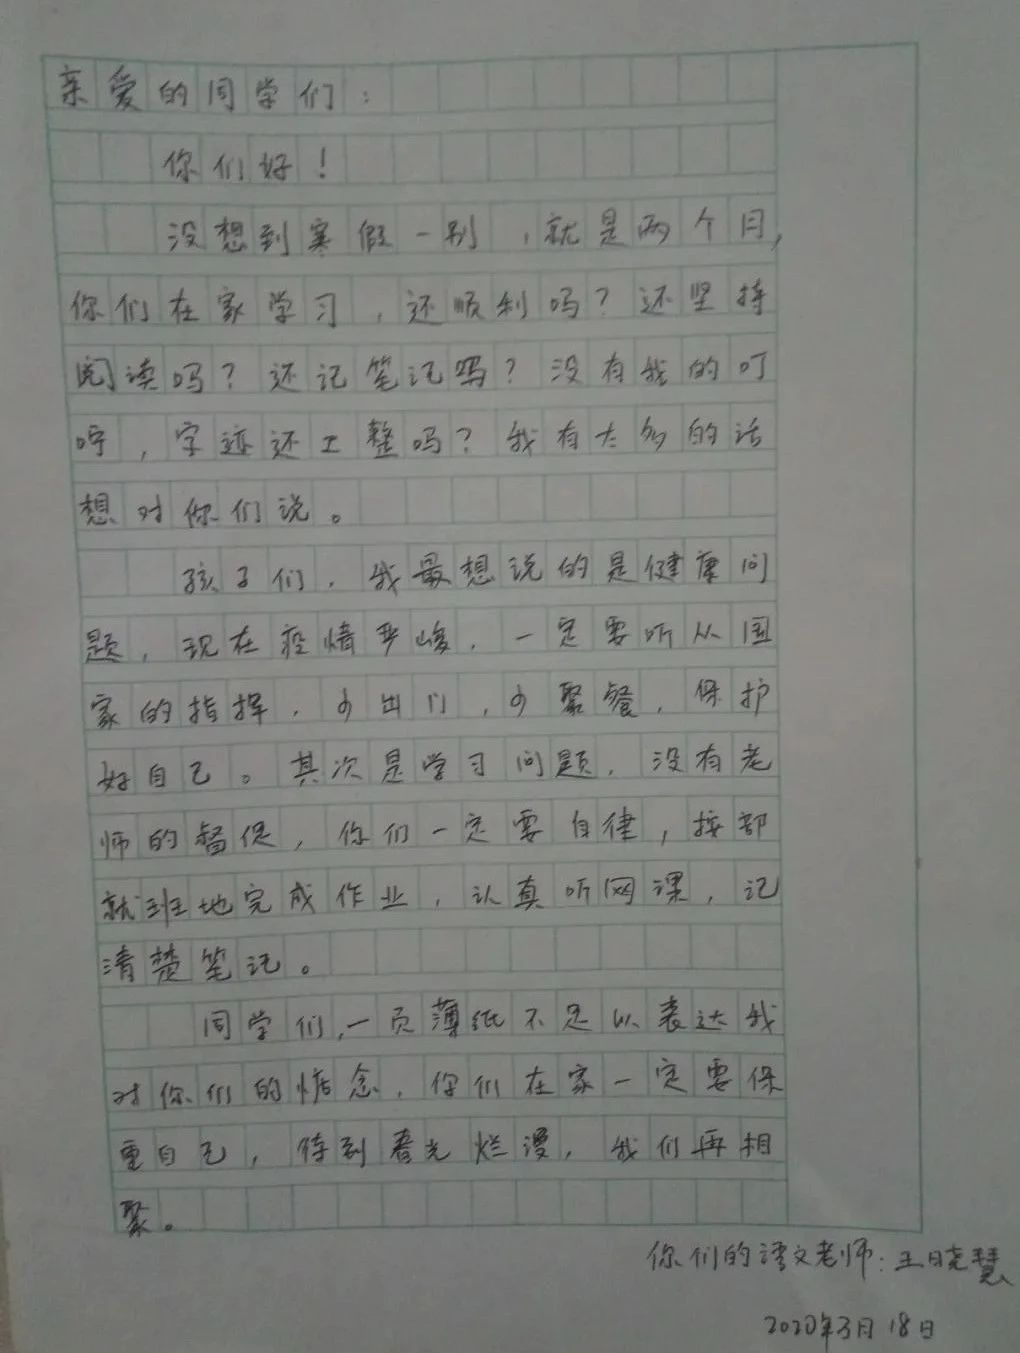 亲爱的同学们：
你们好！
没想到寒假一别，就是两个月，
你们在家学习，还顺利吗？还坚持
阅读吗？还记笔记吗？没有我的叮
咛，字迹还工整吗？我有太多的话
想对你们说。
孩子们，我最想说的是健康问
题，现在疫情严峻，一定要听从国
家的指挥，少出门，少聚餐，保护
好自己。其次是学习问题，没有老
师的督促，你们一定要自律，按部
就班地完成作业，认真听网课，记
清楚笔记。
同学们，一页薄纸不足以表达我
对你们的惦念，你们在家一定要保
重自己，待到春光烂漫，我们再相
聚。
你们的语文老师：王晓慧
2020年3月18日